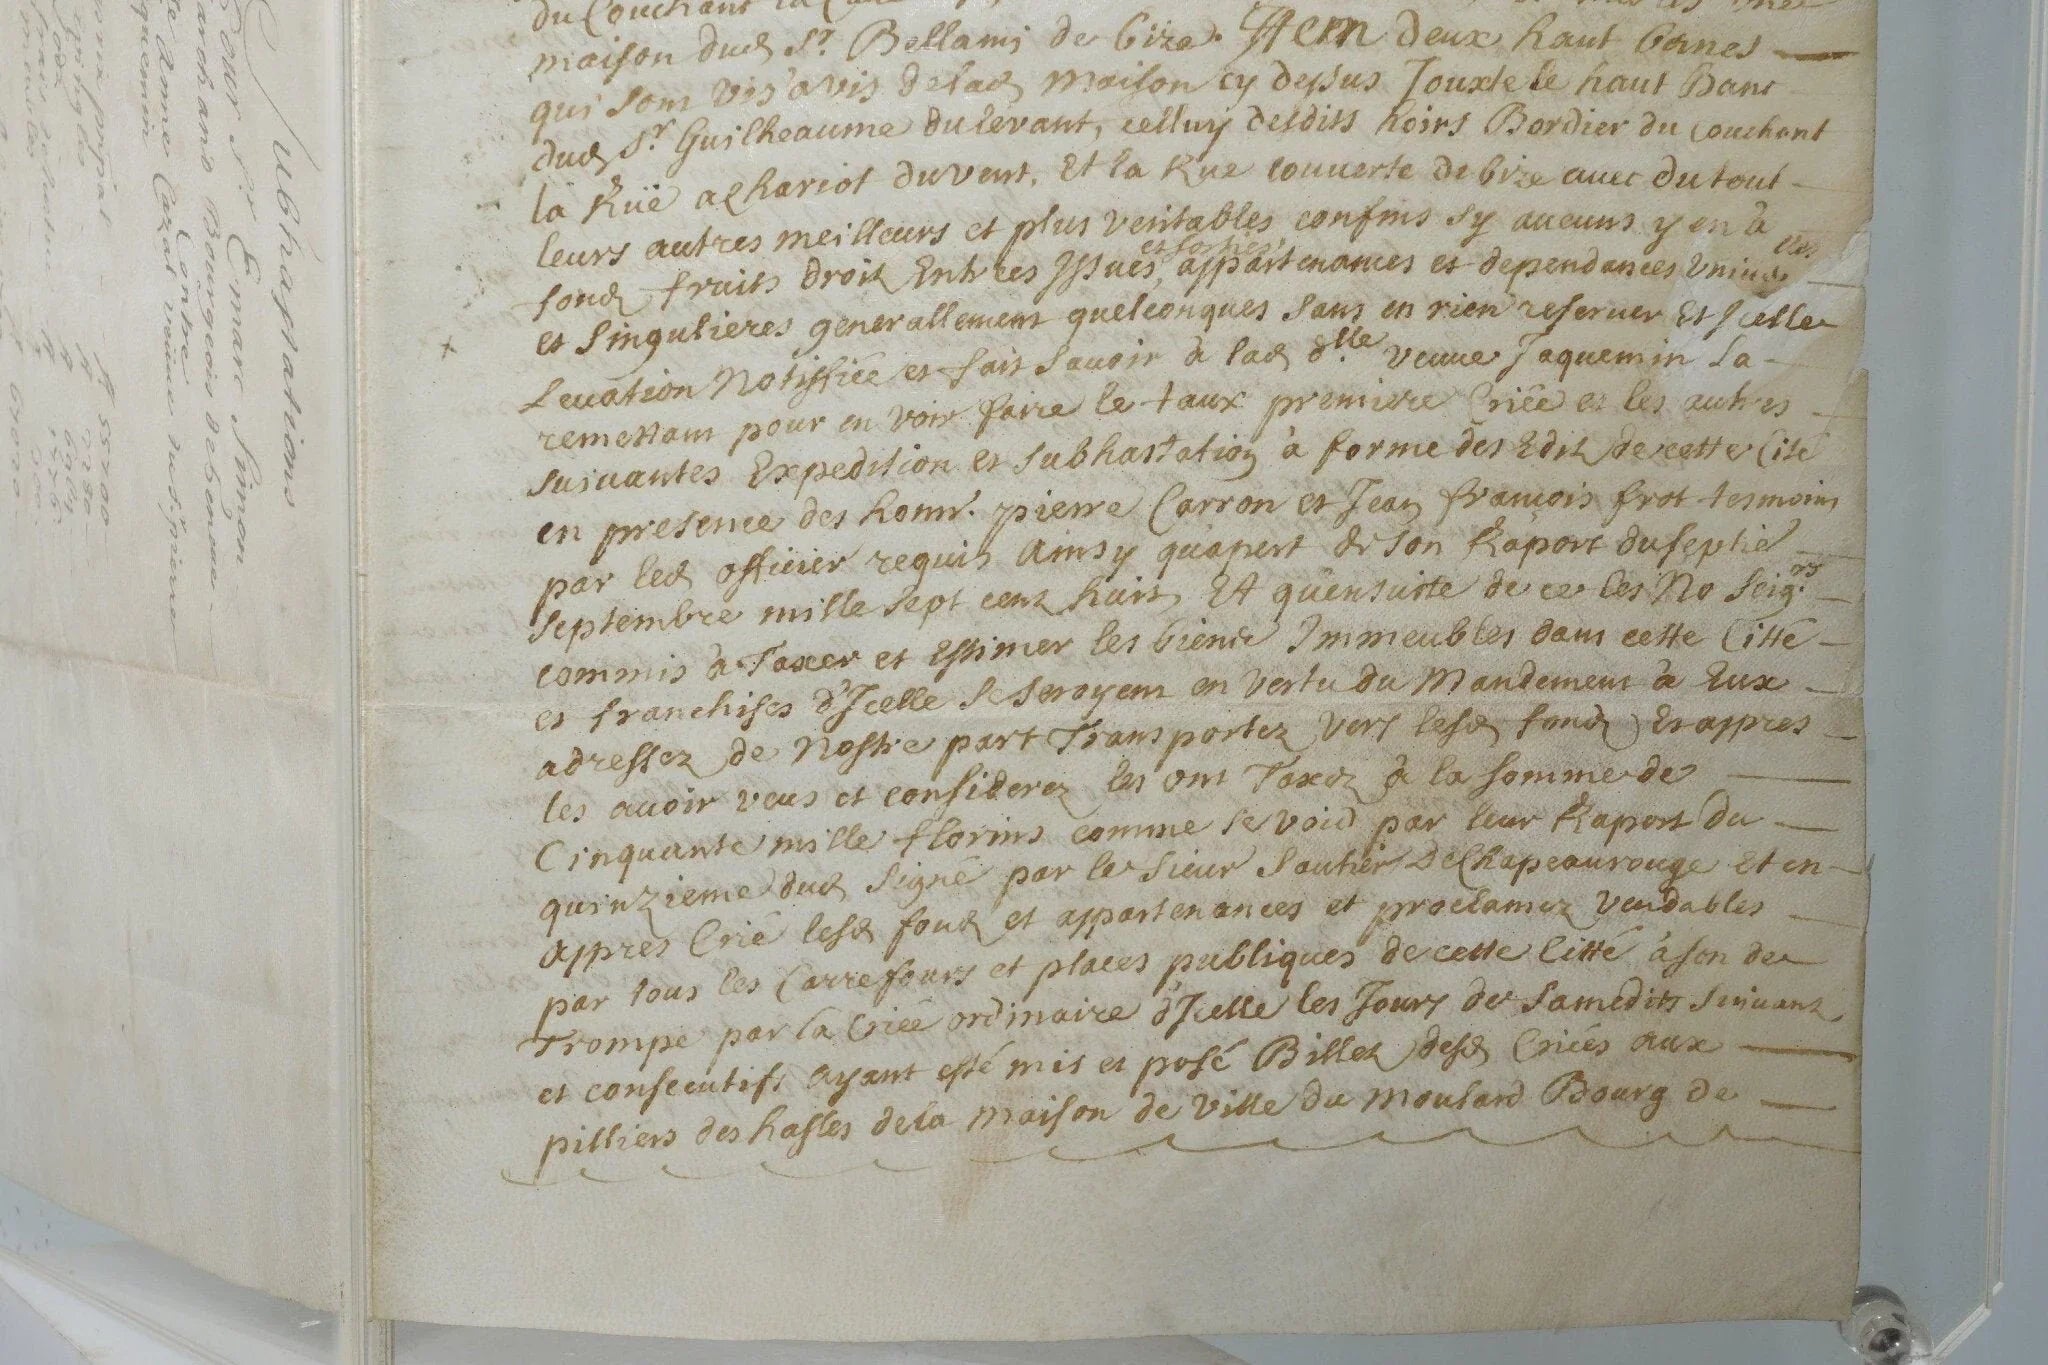 du Couchant la
maison dud Sr. Bellami de bize. Item deux haut banes
qui sont vis a vis de lad maison cy dessus Jouxte le haut Banc
dud Sr. Guilheaume du levant, celluy desdits hoirs Bordier du couchant
la Rüe a Chariot du vent, Et la Rue couverte de bize avec du tout
leurs autres meilleurs et plus veritables confins sy aucuns y en à
fond fruits droit Entrées Issues appartenances et dependances Unive
et singulieres generallement quelconques sans en rien reserver Et Icelle
Levation Notiffiée et fait savoir à lad dlle veuve Jaquemin La
remettant pour en voir faire le taux premiere Criée et les autres
suivantes Expedition et subhastation à forme des Edit de cette Cité
en presence des honn. pierre Carron et Jean françois frot tesmoins
par led officier requis Ainsy qu'apert de son Raport du septié
septembre mille sept cent huit, Et qu'ensuitte de ce les No Seigrs
commis à Taxer et Estimer les biens Immeubles dans cette Citté
et franchises d'Icelle se seroyent en vertu du Mandement à Eux
adressez de Nostre part Transportez vers lesd fond Et appres
les avoir veus et considerez les ont Taxez à la somme de
Cinquante mille florins comme se void par leur Raport du
quinzieme dud signé par le sieur Sautier DeChapeaurouge Et en
appres Crié lesd fond et appartenances et proclamez vendables
par tous les Carrefours et places publiques de cette Citté à son de
Trompe par la Criée ordinaire d'Icelle les Jours de Samedits suivant
et consecutifs ayant esté mis et posé Billet desd Criées aux
pilliers des hasles de la maison de ville du Moulard Bourg de
Subhastations
Pour Sr. Emarc Simon
Marchand Bourgeois de Geneve
Contre
Anne Cazat veufve du S. pierre
Jaquemin